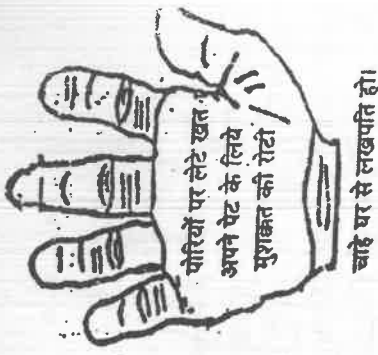 पोरियों पर लेटे खत
अपने पेट के लिये
मुशक्कत की रोटी
चाहे घर से लखपति हो।